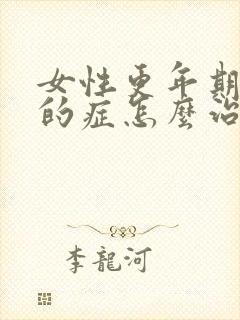 女性更年期
的症怎麼治
李龍河